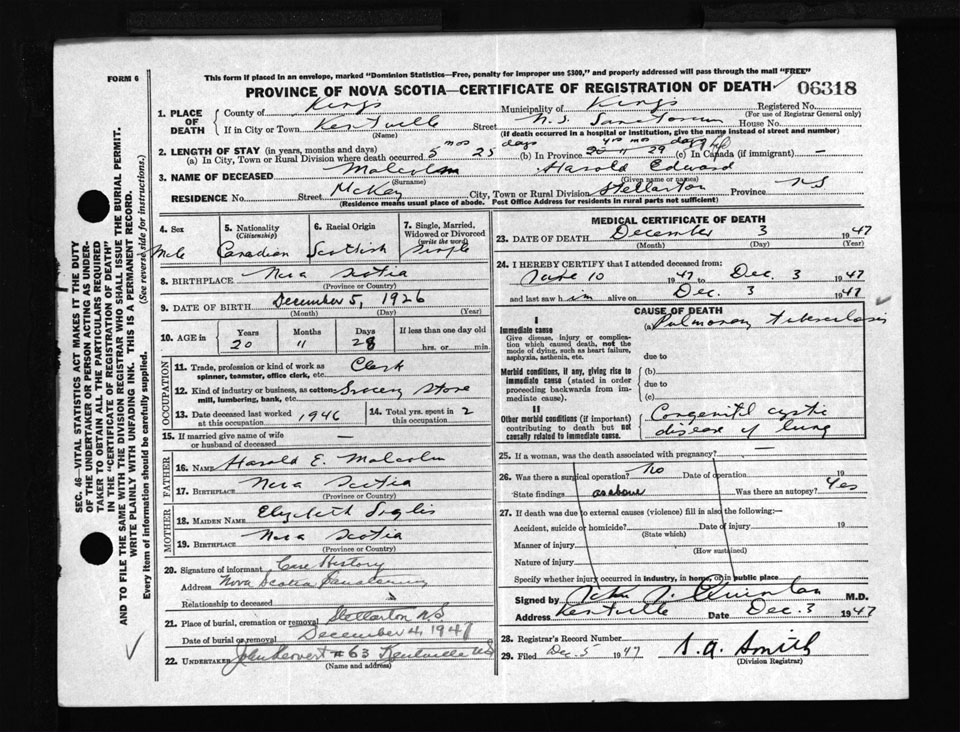 FORM 6
This form if placed in an envelope, marked "Dominion Statistics—Free, penalty for improper use $300," and properly addressed will pass through the mail "FREE"
PROVINCE OF NOVA SCOTIA—CERTIFICATE OF REGISTRATION OF DEATH 06318
1. PLACE OF DEATH County of Kings Municipality of Kings Registered No.
(For use of Registrar General only)
If in City or Town Kentville Street N.S. Sanatorium House No.
(Name) (If death occurred in a hospital or institution, give the name instead of street and number)
2. LENGTH OF STAY (in years, months and days)
(a) In City, Town or Rural Division where death occurred 5 mos 25 days (b) In Province 20 yrs 11 mos 29 days (c) In Canada (if immigrant) —
3. NAME OF DECEASED Malcolm Harold Edward
(Surname) (Given name or names)
RESIDENCE No. Street McKay City, Town or Rural Division Stellarton Province N.S.
(Residence means usual place of abode. Post Office Address for residents in rural parts not sufficient)
4. Sex 5. Nationality (Citizenship) 6. Racial Origin 7. Single, Married, Widowed or Divorced (write the word)
Male Canadian Scottish Single
8. BIRTHPLACE Nova Scotia
(Province or Country)
9. DATE OF BIRTH December 5, 1926
(Month) (Day) (Year)
10. AGE in Years Months Days If less than one day old
20 11 28 hrs. or min.
OCCUPATION
11. Trade, profession or kind of work as spinner, teamster, office clerk, etc. Clerk
12. Kind of industry or business, as cotton mill, lumbering, bank, etc. Grocery Store
13. Date deceased last worked at this occupation 1946 14. Total yrs. spent in this occupation 2
15. If married give name of wife or husband of deceased —
FATHER
16. NAME Harold E. Malcolm
17. BIRTHPLACE Nova Scotia
(Province or Country)
MOTHER
18. MAIDEN NAME Elizabeth Inglis
19. BIRTHPLACE Nova Scotia
(Province or Country)
20. Signature of informant Case History
Address Nova Scotia Sanatorium
Relationship to deceased
21. Place of burial, cremation or removal Stellarton N.S.
Date of burial or removal December 4, 1947
22. UNDERTAKER # 63 Kentville N.S.
(Name and address)
MEDICAL CERTIFICATE OF DEATH
23. DATE OF DEATH December 3 1947
(Month) (Day) (Year)
24. I HEREBY CERTIFY that I attended deceased from:
June 10 1947 to Dec. 3 1947
and last saw him alive on Dec. 3 1947
CAUSE OF DEATH
I
Immediate cause (a) Pulmonary tuberculosis
Give disease, injury or complication which caused death, not the mode of dying, such as heart failure, asphyxia, asthenia, etc. due to
Morbid conditions, if any, giving rise to immediate cause (stated in order proceeding backwards from immediate cause). (b)
due to
(c)
II
Other morbid conditions (if important) contributing to death but not causally related to immediate cause. Congenital cystic
disease of lung
25. If a woman, was the death associated with pregnancy? —
26. Was there a surgical operation? No Date of operation 19
State findings as above Was there an autopsy? Yes
27. If death was due to external causes (violence) fill in also the following:—
Accident, suicide or homicide? Date of injury 19
(State which)
Manner of injury
(How sustained)
Nature of injury
Specify whether injury occurred in industry, in home, or in public place
Signed by John J. Quinlan M.D.
Address Kentville Date Dec. 3 1947
28. Registrar's Record Number
29. Filed Dec. 5 1947 Smith
(Division Registrar)
SEC. 46—VITAL STATISTICS ACT MAKES IT THE DUTY
OF THE UNDERTAKER OR PERSON ACTING AS UNDER-
TAKER TO OBTAIN ALL THE PARTICULARS REQUIRED
IN THE "CERTIFICATE OF REGISTRATION OF DEATH"
AND TO FILE THE SAME WITH THE DIVISION REGISTRAR WHO SHALL ISSUE THE BURIAL PERMIT.
WRITE PLAINLY WITH UNFADING INK. THIS IS A PERMANENT RECORD.
Every item of information should be carefully supplied. (See reverse side for instructions.)